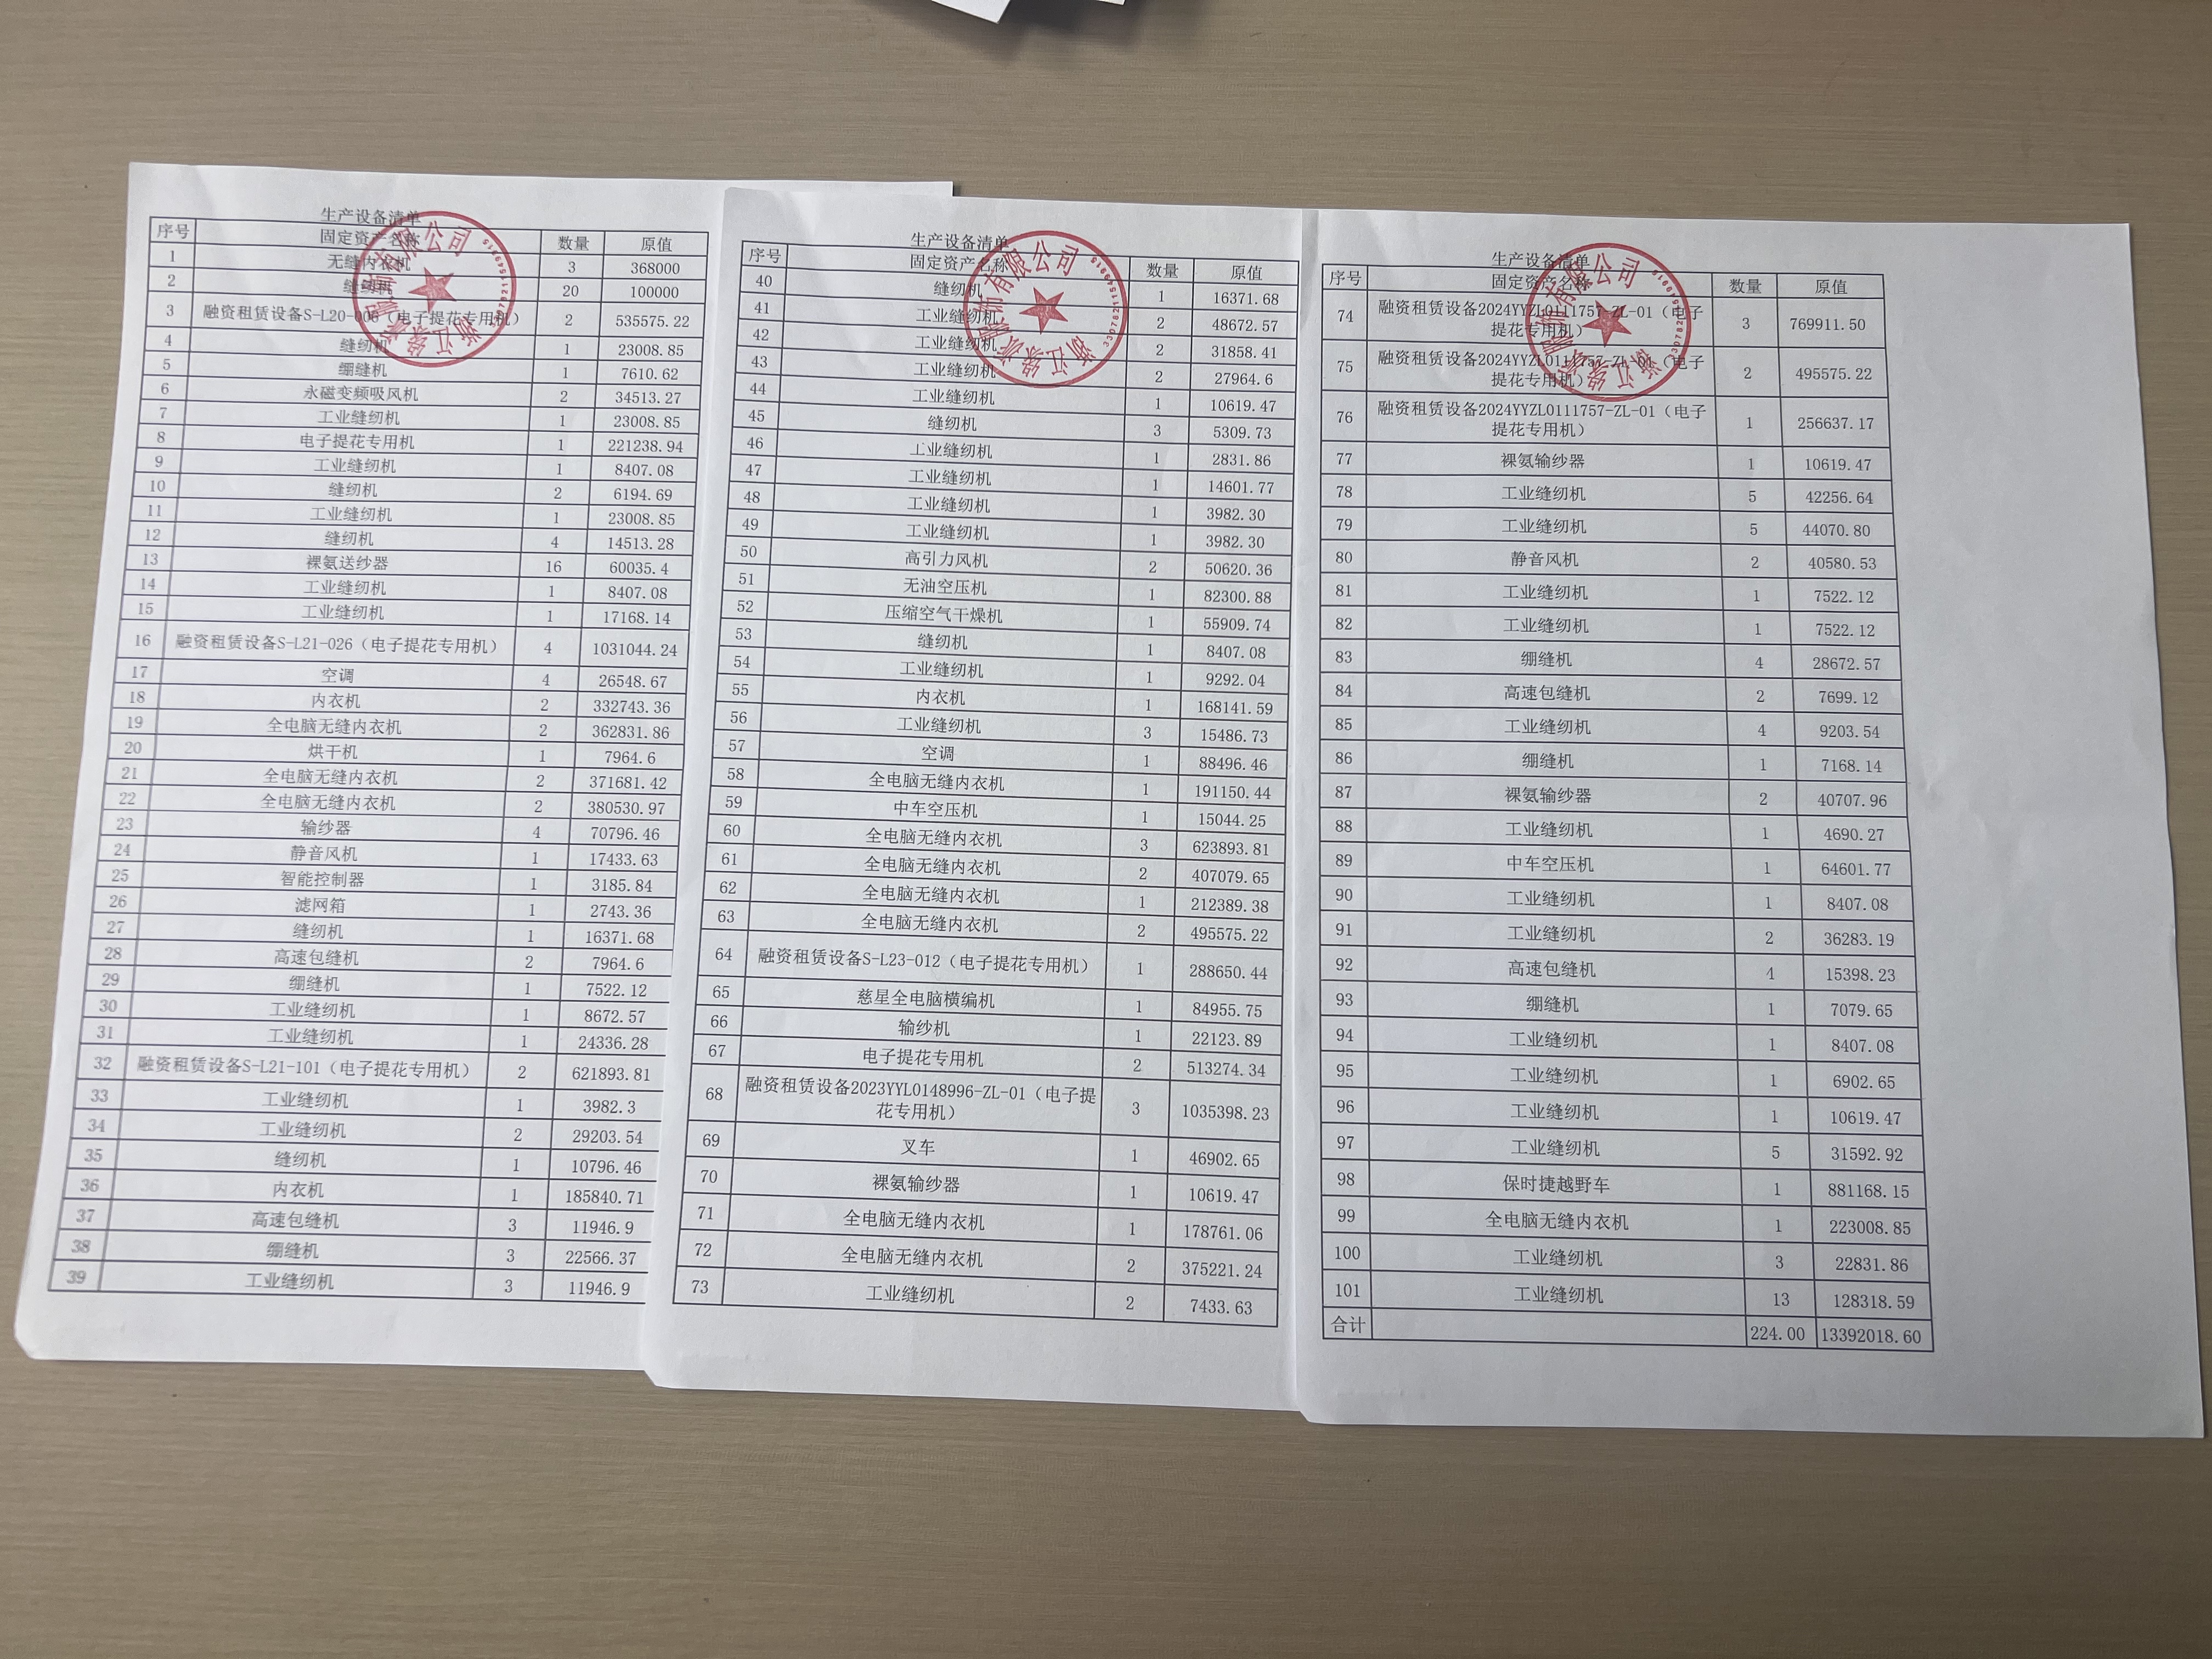 生产设备清单
序号 固定资产名称 数量 原值
1 无缝内衣机 3 368000
2 缝纫机 20 100000
3 融资租赁设备S-L20-006（电子提花专用机） 2 535575.22
4 缝纫机 1 23008.85
5 绷缝机 1 7610.62
6 永磁变频吸风机 2 34513.27
7 工业缝纫机 1 23008.85
8 电子提花专用机 1 221238.94
9 工业缝纫机 1 8407.08
10 缝纫机 2 6194.69
11 工业缝纫机 1 23008.85
12 缝纫机 4 14513.28
13 裸氨送纱器 16 60035.4
14 工业缝纫机 1 8407.08
15 工业缝纫机 1 17168.14
16 融资租赁设备S-L21-026（电子提花专用机） 4 1031044.24
17 空调 4 26548.67
18 内衣机 2 332743.36
19 全电脑无缝内衣机 2 362831.86
20 烘干机 1 7964.6
21 全电脑无缝内衣机 2 371681.42
22 全电脑无缝内衣机 2 380530.97
23 输纱器 4 70796.46
24 静音风机 1 17433.63
25 智能控制器 1 3185.84
26 滤网箱 1 2743.36
27 缝纫机 1 16371.68
28 高速包缝机 2 7964.6
29 绷缝机 1 7522.12
30 工业缝纫机 1 8672.57
31 工业缝纫机 1 24336.28
32 融资租赁设备S-L21-101（电子提花专用机） 2 621893.81
33 工业缝纫机 1 3982.3
34 工业缝纫机 2 29203.54
35 缝纫机 1 10796.46
36 内衣机 1 185840.71
37 高速包缝机 3 11946.9
38 绷缝机 3 22566.37
39 工业缝纫机 3 11946.9
生产设备清单
序号 固定资产名称 数量 原值
40 缝纫机 1 16371.68
41 工业缝纫机 2 48672.57
42 工业缝纫机 2 31858.41
43 工业缝纫机 2 27964.6
44 工业缝纫机 1 10619.47
45 缝纫机 3 5309.73
46 工业缝纫机 1 2831.86
47 工业缝纫机 1 14601.77
48 工业缝纫机 1 3982.30
49 工业缝纫机 1 3982.30
50 高引力风机 2 50620.36
51 无油空压机 1 82300.88
52 压缩空气干燥机 1 55909.74
53 缝纫机 1 8407.08
54 工业缝纫机 1 9292.04
55 内衣机 1 168141.59
56 工业缝纫机 3 15486.73
57 空调 1 88496.46
58 全电脑无缝内衣机 1 191150.44
59 中车空压机 1 15044.25
60 全电脑无缝内衣机 3 623893.81
61 全电脑无缝内衣机 2 407079.65
62 全电脑无缝内衣机 1 212389.38
63 全电脑无缝内衣机 2 495575.22
64 融资租赁设备S-L23-012（电子提花专用机） 1 288650.44
65 慈星全电脑横编机 1 84955.75
66 输纱机 1 22123.89
67 电子提花专用机 2 513274.34
68 融资租赁设备2023YYL0148996-ZL-01（电子提
花专用机） 3 1035398.23
69 叉车 1 46902.65
70 裸氨输纱器 1 10619.47
71 全电脑无缝内衣机 1 178761.06
72 全电脑无缝内衣机 2 375221.24
73 工业缝纫机 2 7433.63
生产设备清单
序号 固定资产名称 数量 原值
74 融资租赁设备2024YYZL0111757-ZL-01（电子
提花专用机） 3 769911.50
75 融资租赁设备2024YYZL0111757-ZL-01（电子
提花专用机） 2 495575.22
76 融资租赁设备2024YYZL0111757-ZL-01（电子
提花专用机） 1 256637.17
77 裸氨输纱器 1 10619.47
78 工业缝纫机 5 42256.64
79 工业缝纫机 5 44070.80
80 静音风机 2 40580.53
81 工业缝纫机 1 7522.12
82 工业缝纫机 1 7522.12
83 绷缝机 4 28672.57
84 高速包缝机 2 7699.12
85 工业缝纫机 4 9203.54
86 绷缝机 1 7168.14
87 裸氨输纱器 2 40707.96
88 工业缝纫机 1 4690.27
89 中车空压机 1 64601.77
90 工业缝纫机 1 8407.08
91 工业缝纫机 2 36283.19
92 高速包缝机 4 15398.23
93 绷缝机 1 7079.65
94 工业缝纫机 1 8407.08
95 工业缝纫机 1 6902.65
96 工业缝纫机 1 10619.47
97 工业缝纫机 5 31592.92
98 保时捷越野车 1 881168.15
99 全电脑无缝内衣机 1 223008.85
100 工业缝纫机 3 22831.86
101 工业缝纫机 13 128318.59
合计 224.00 13392018.60